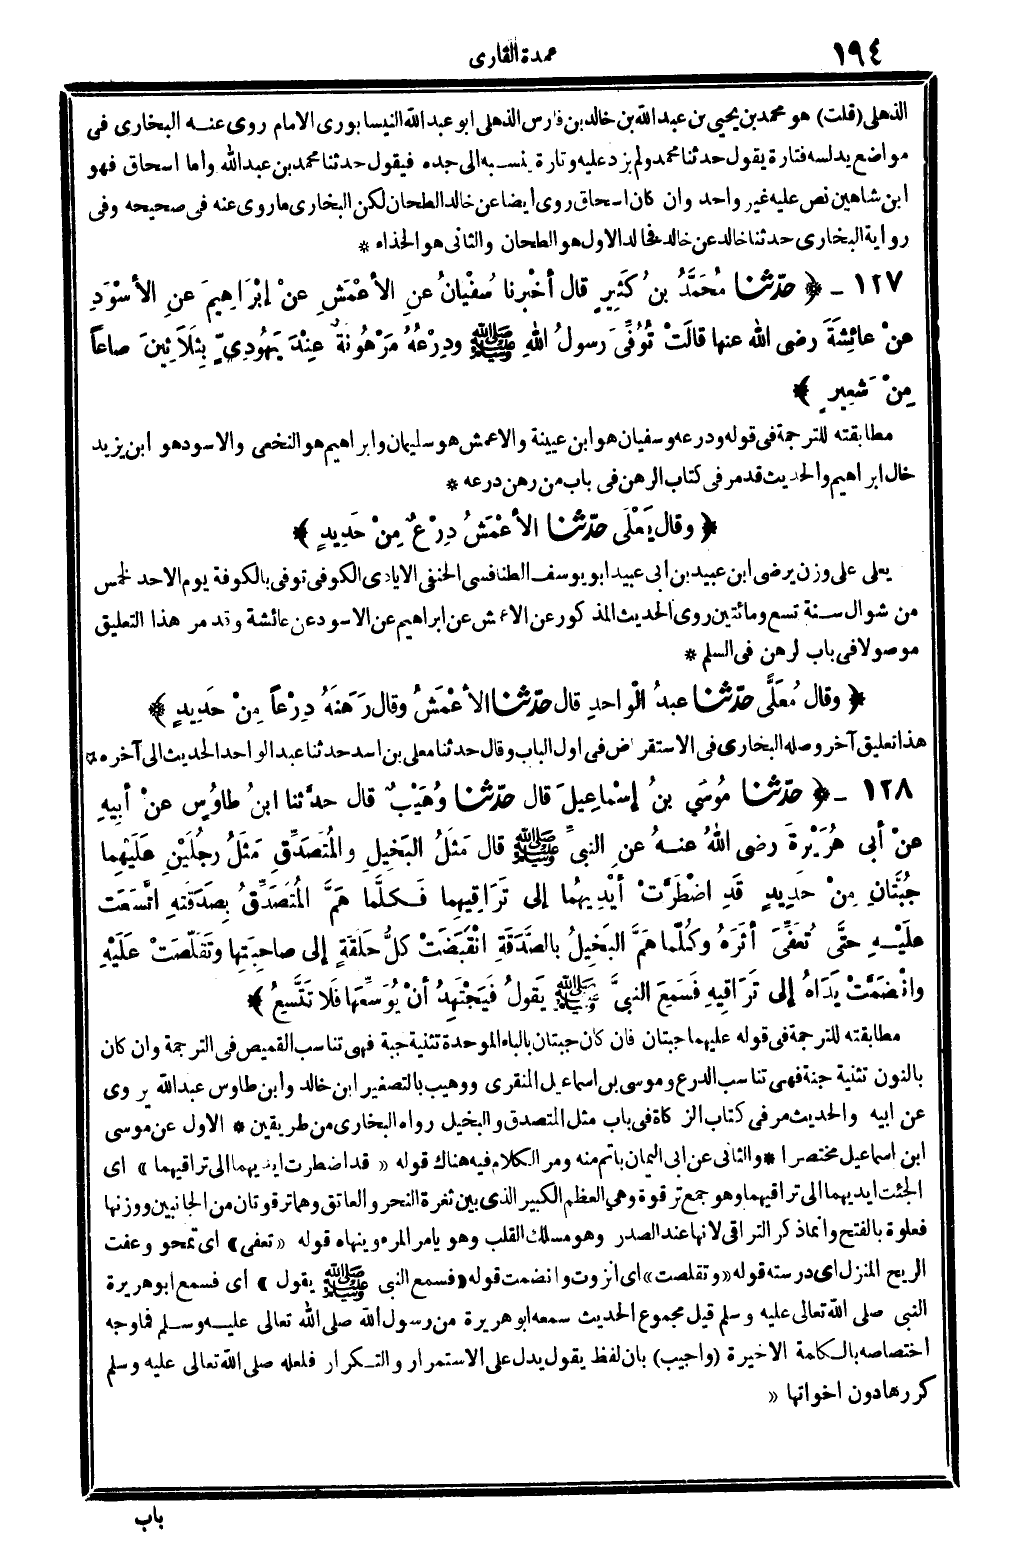 ١٩٤
عمدة القارى
الذهلى (قلت) هو محمد بن يحيى بن عبد الله بن خالد بن فارس الذهلى ابو عبد الله النيسابورى الامام روى عنـه البخارى فى
مواضع يدلسه فتارة يقول حدثنا محمد ولم يزد عليه وتارة ينسبه الى جده فيقول حدثنا محمد بن عبد الله وأما اسحاق فهو
ابن شاهين نص عليه غير واحد وان كان اسحاق روى ايضا عن خالد الطحان لكن البخارى ما روى عنه فى صحيحه وفى
رواية البخارى حدثنا خالد عن خالد فخالد الاول هو الطحان والثانى هو الحذاء *
١٢٧ - ﴿ حدّثنا مُحَمَّدُ بنُ كَثِيرٍ قال أخْبرنا سُفْيانُ عنِ الأعْمَشِ عنْ إبْرَاهِيمَ عنِ الأسْوَدِ
عنْ عائِشَةَ رضى الله عنها قالَتْ تُوُفِّىَ رَسولُ اللهِ ﷺ ودِرْعُهُ مَرْهُونَةٌ عِنْدَ يَهُودِيٍّ بِثَلاَثِينَ صاعاً
مِنْ شَعِيرٍ ﴾
مطابقته للترجمة فى قوله ودرعه وسفيان هو ابن عيينة والاعمش هو سليمان وابراهيم هو النخعى والاسود هو ابن يزيد
خال ابراهيم والحديث قد مر فى كتاب الرهن فى باب من رهن درعه *
﴿ وقال يَعْلَى حدّثنا الأعْمَشُ دِرْعٌ مِنْ حَدِيدٍ ﴾
يعلى على وزن يرضى ابن عبيد بن ابى عبيد ابو يوسف الطنافسى الحنفى الايادى الكوفى توفى بالكوفة يوم الاحد لخمس
من شوال سنة تسع ومائتين روى الحديث المذكور عن الاعمش عن ابراهيم عن الاسود عن عائشة وقد مر هذا التعليق
موصولا فى باب لرهن فى السلم *
﴿ وقال مُعَلَّى حدّثنا عبدُ الْواحِدِ قال حدّثنا الأعْمَشُ وقال رَهَنَهُ دِرْعاً مِنْ حَدِيدٍ ﴾
هذا تعليق آخر وصله البخارى فى الاستقراض فى اول الباب وقال حدثنا معلى بن اسد حدثنا عبد الواحد الحديث الى آخره *
١٢٨ - ﴿ حدّثنا مُوسَي بنُ إسْماعِيلَ قال حدّثنا وُهَيْبٌ قال حدَّثنا ابنُ طاوُسٍ عنْ أبِيهِ
عنْ أبى هُرَيْرةَ رضى اللهُ عنـهُ عنِ النبىِّ ﷺ قال مَثَلُ البَخِيلِ والمُتَصَدِّقِ مَثَلُ رجُلَيْنِ عَلَيْهِما
جُبَّتَانِ مِنْ حَدِيدٍ قَدِ اضْطَرَّتْ أيْدِيهُما إلى تَرَاقِيهِما فَـكلَّما هَمَّ المُتَصَدِّقُ بِصَدَقَتِهِ اتَّسَعَتْ
علَيْـهِ حتَّى تُعَفِّىَ أثَرَهُ وكُلّما هَمَّ البَخِيلُ بالصَّدَقَةِ انْقَبَضَتْ كلُّ حَلْقَةٍ إلى صاحِبَتِها وتَقَلّصَتْ عَلَيْهِ
وانْضَمَّتْ يَدَاهُ إلى تَرَاقِيهِ فَسَمِعَ النبىَّ ﷺ يَقولُ فَيَجْتَهِدُ أنْ يُوَسِّعَها فَلا تَتَّسِعُ ﴾
مطابقته للترجمة فى قوله عليهما جبتان فان كان جبتان بالباء الموحدة تثنية جبة فهى تناسب القميص فى الترجمة وان كان
بالنون تثنية جنة فهى تناسب الدرع وموسى بن اسماعيل المنقرى ووهيب بالتصغير ابن خالد وابن طاوس عبد الله يروى
عن ابيه والحديث مر فى كتاب الزكاة فى باب مثل المتصدق والبخيل رواه البخارى من طريقين * الاول عن موسى
ابن اسماعيل مختصرا * والثانى عن ابى اليمان باتم منه ومر الكلام فيه هناك قوله « قد اضطرت ايديهما الى تراقيهما » اى
الجئت ايديهما الى تراقيهما وهو جمع ترقوة وهي العظم الكبير الذى بين ثغرة النحر والعاتق وهما ترقوتان من الجانبين ووزنها
فعلوة بالفتح وانما ذكر التراقى لانها عند الصدر وهو مسلك القلب وهو يامر المرء وينهاه قوله «تعفى» اى تمحو وعفت
الريح المنزل اى درسته قوله «وتقلصت» اى انزوت وانضمت قوله «فسمع النبى ﷺ يقول» اى فسمع ابو هريرة
النبى صلى الله تعالى عليه وسلم قيل مجموع الحديث سمعه ابو هريرة من رسول الله صلى الله تعالى عليـه وسـلم فما وجه
اختصاصه بالـكلمة الاخيرة (واجيب) بان لفظ يقول يدل على الاستمرار والتـكرار فلعله صلى الله تعالى عليه وسلم
كررها دون اخواتها «
باب